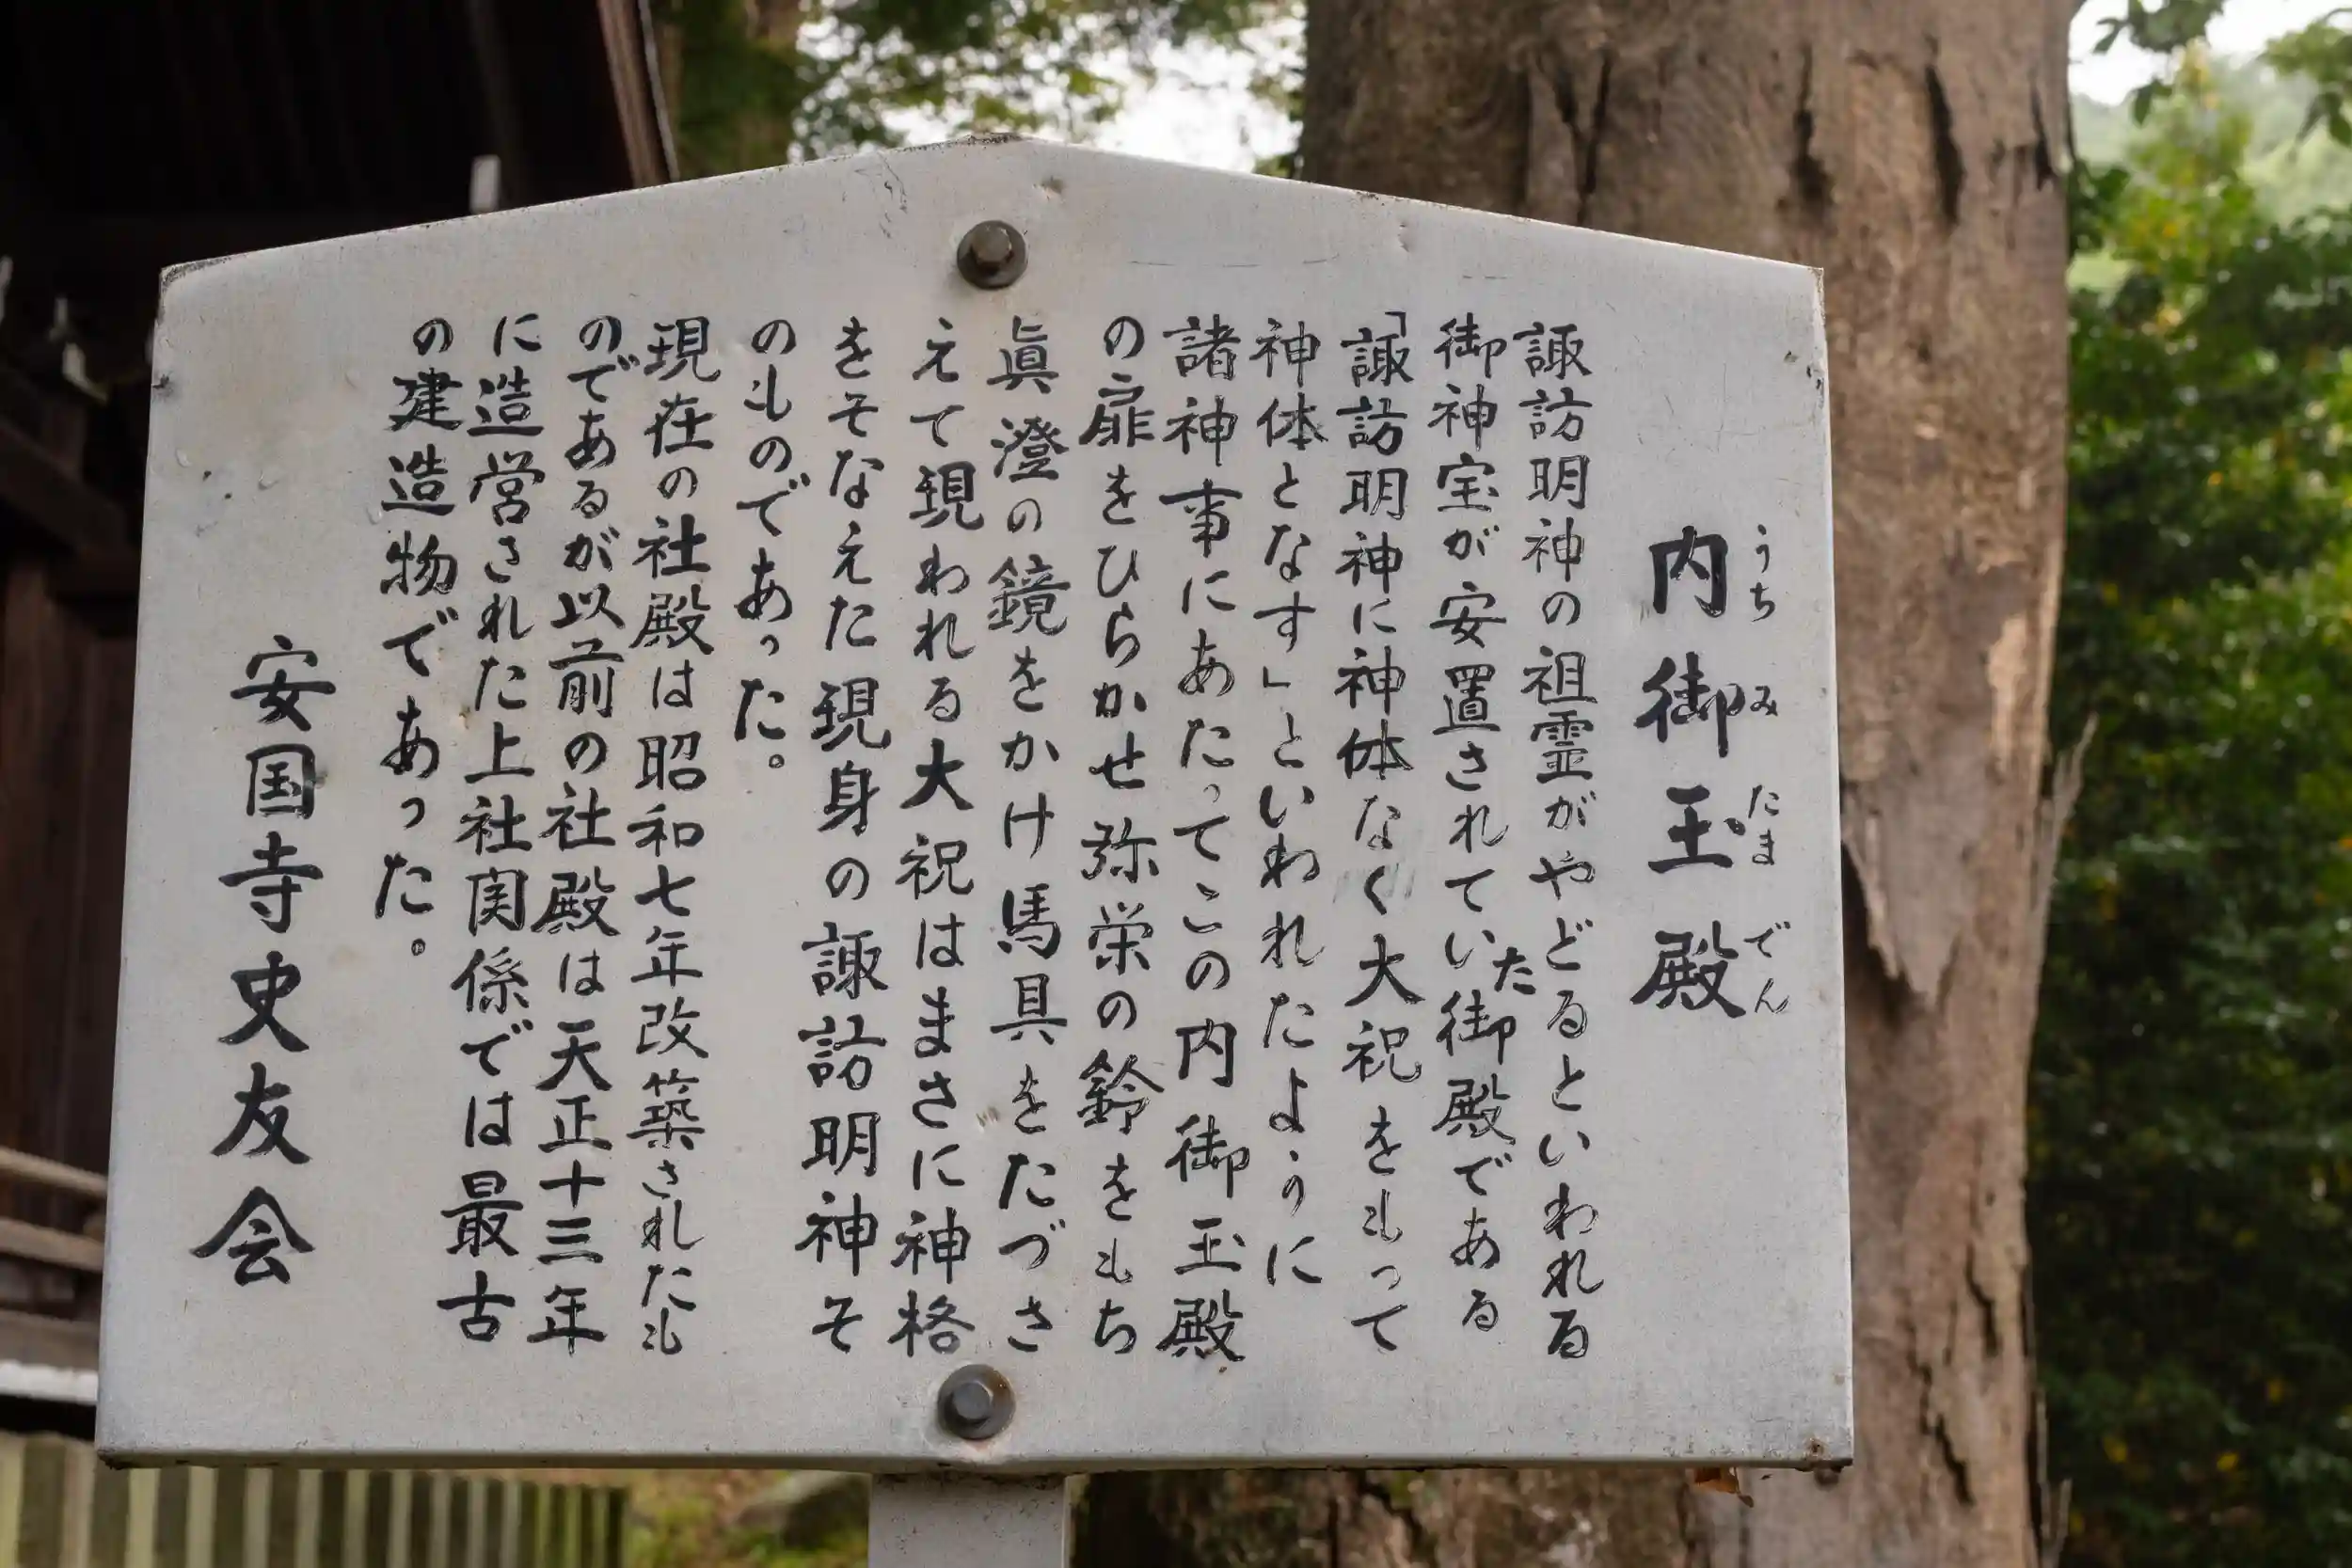 内御玉殿
うちみたまでん
諏訪明神の祖霊がやどるといわれる
御神宝が安置されていた御殿である
「諏訪明神に神体なく大祝をもって
神体となす」といわれたように
諸神事にあたってこの内御玉殿
の扉をひらかせ弥栄の鈴をもち
眞澄の鏡をかけ馬具をたづさ
えて現われる大祝はまさに神格
をそなえた現身の諏訪明神そ
のものであった。
現在の社殿は昭和七年改築されたも
のであるが以前の社殿は天正十三年
に造営された上社関係では最古
の建造物であった。
安国寺史友会